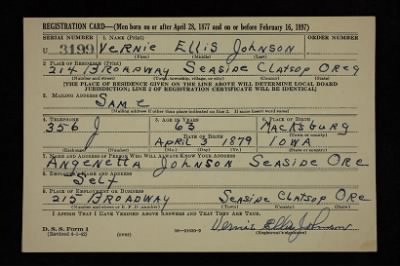 REGISTRATION CARD—(Men born on or after April 28, 1877 and on or before February 16, 1897)
SERIAL NUMBER 1. NAME (Print) ORDER NUMBER
U 3199 VERNIE ELLIS JOHNSON
(First) (Middle) (Last)
2. PLACE OF RESIDENCE (Print)
214 BROADWAY SEASIDE CLATSOP OREG
(Number and street) (Town, township, village, or city) (County) (State)
[THE PLACE OF RESIDENCE GIVEN ON THE LINE ABOVE WILL DETERMINE LOCAL BOARD
JURISDICTION; LINE 2 OF REGISTRATION CERTIFICATE WILL BE IDENTICAL]
3. MAILING ADDRESS
SAME
[Mailing address if other than place indicated on line 2. If same insert word same]
4. TELEPHONE 5. AGE IN YEARS 6. PLACE OF BIRTH
356 J 63 MACKSBURG
DATE OF BIRTH (Town or county)
APRIL 3 1879 IOWA
(Mo.) (Day) (Yr.) (State or country)
7. NAME AND ADDRESS OF PERSON WHO WILL ALWAYS KNOW YOUR ADDRESS
ANGENETTA JOHNSON SEASIDE ORE
8. EMPLOYER'S NAME AND ADDRESS
SELF
9. PLACE OF EMPLOYMENT OR BUSINESS
215 BROADWAY SEASIDE CLATSOP ORE
(Number and street or R. F. D. number) (Town) (County) (State)
I AFFIRM THAT I HAVE VERIFIED ABOVE ANSWERS AND THAT THEY ARE TRUE.
D. S. S. Form 1 Vernie Ellis Johnson
(Revised 4-1-42) (over) (Registrant's signature)